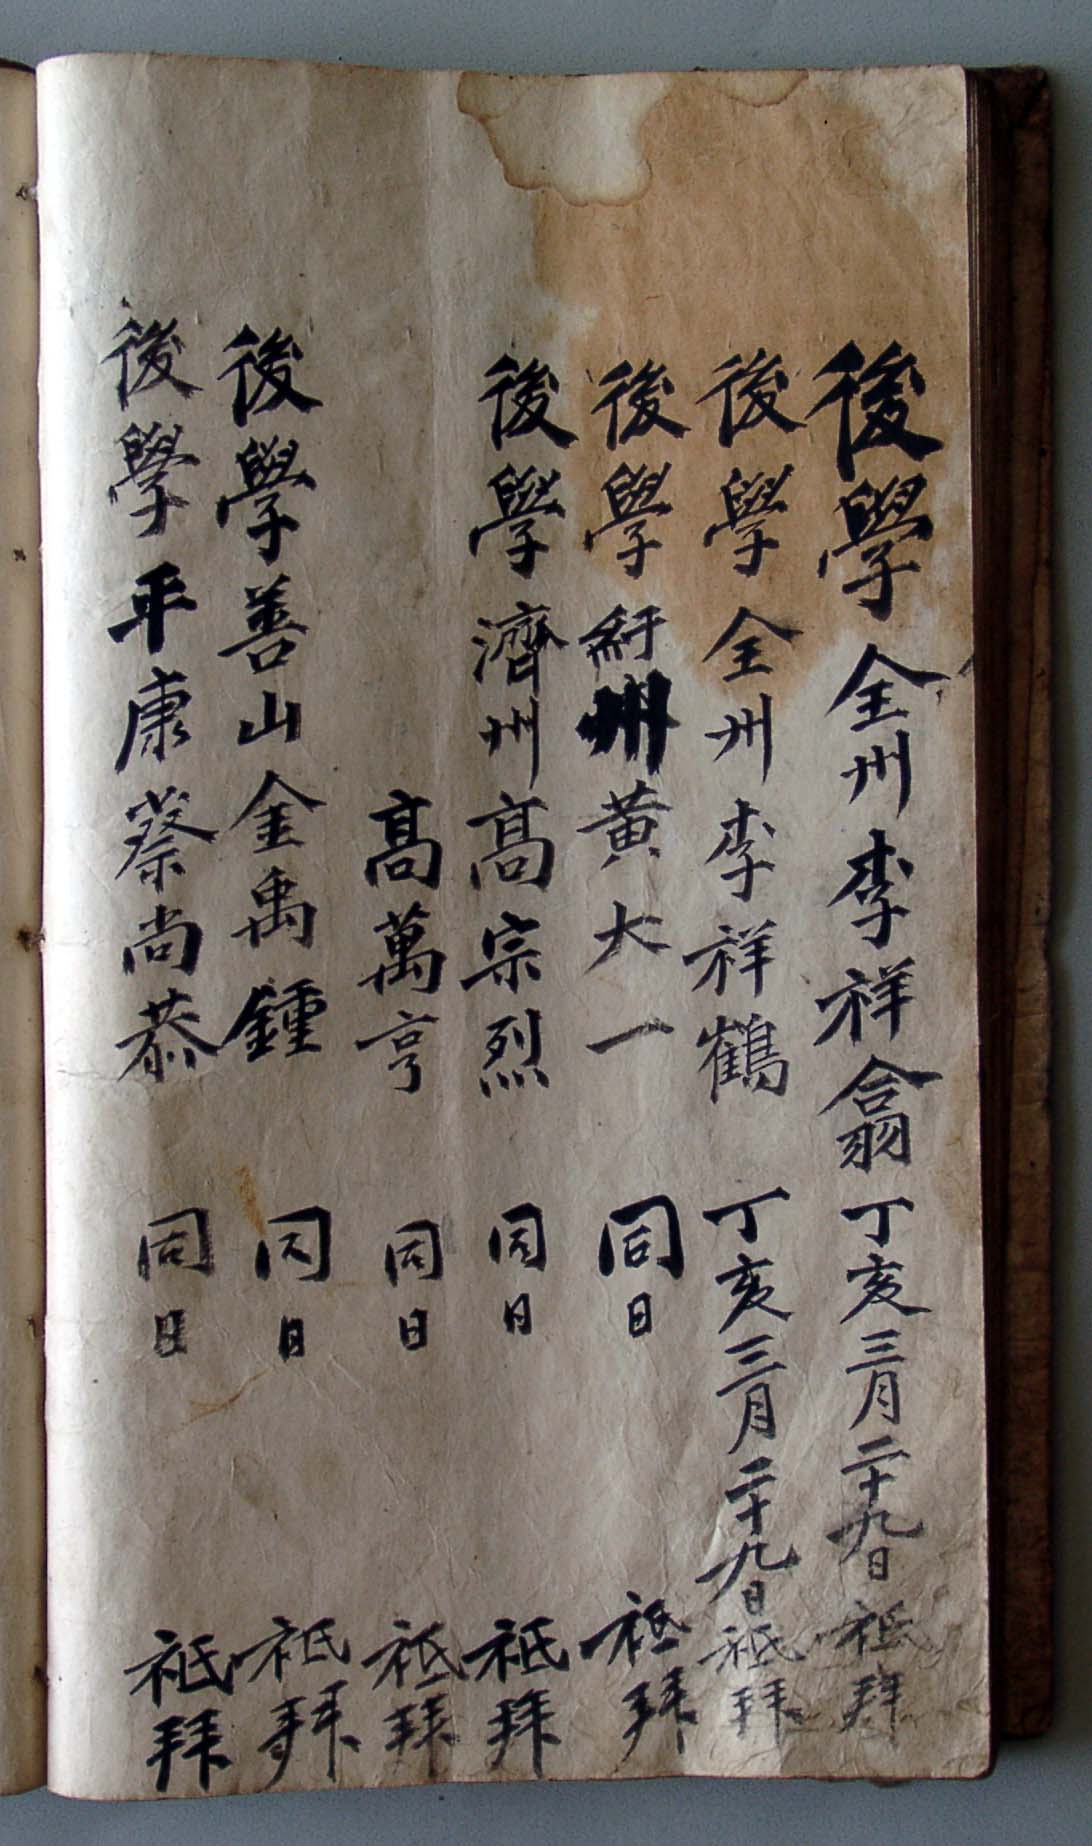 後學全州李祥翕丁亥三月二十九日祗拜
後學全州李祥鶴丁亥三月二十九日祗拜
後學紆州黃大一同日祗拜
後學濟州髙宗烈同日祗拜
髙萬亨同日祗拜
後學善山金禹鍾同日祗拜
後學平康蔡尚恭同日祗拜